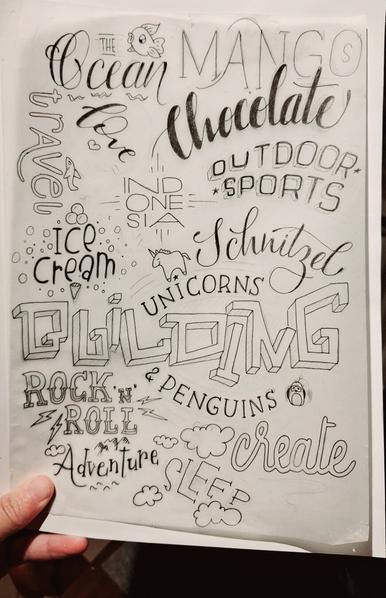 THE
Ocean
MANGOS
travel
love
Chocolate
OUTDOOR
SPORTS
INDONESIA
Schnitzel
Ice
Cream
UNICORNS
BUILDING
& PENGUINS
ROCK 'N'
ROLL
create
Adventure
SLEEP